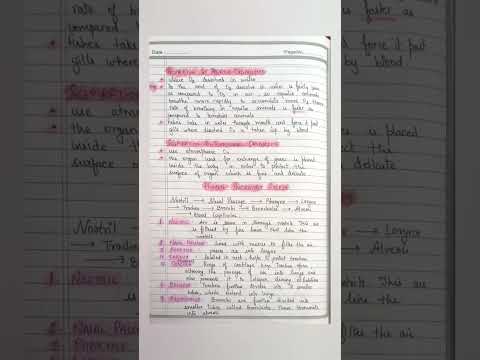 Date
Page No.
Respiration In Aquatic Organisms
use O2 dissolved in water
As the amt. of O2 dissolve in water is fairly low
as compared to O2 in air so aquatic animals
breathe more rapidly to accumulate more O2. Hence
rate of breathing in aquatic animals is faster as
compared to terrestrial animals
fishes take in water through mouth and force it past
gills where dissolved O2 is taken up by blood
Respiration In Terrestrial Organisms
use atmospheric O2
the organ used for exchange of gases is placed
inside the body in order to protect the
surface of organ which is fine and delicate
Human Respiratory System
Nostril → Nasal Passage → Pharynx → Larynx
→ Trachea → Bronchi → Bronchioles → Alveoli
→ Blood Capillaries
Nostril Air is taken in through nostril. This air
is filtered by fine hairs that line the
nostril
Nasal Passage lined with mucus to filter the air
Pharynx passes air into larynx
Larynx located in neck, helps to protect trachea
Rings of cartilage keep trachea open,
allowing the passage of air into lungs and
also prevent it to collapse during exhalation
Bronchi Trachea further divides into 2 smaller
tubes which extend into lungs
Bronchioles Bronchi are further divided into
smaller tubes called bronchioles. These terminate
into alveoli